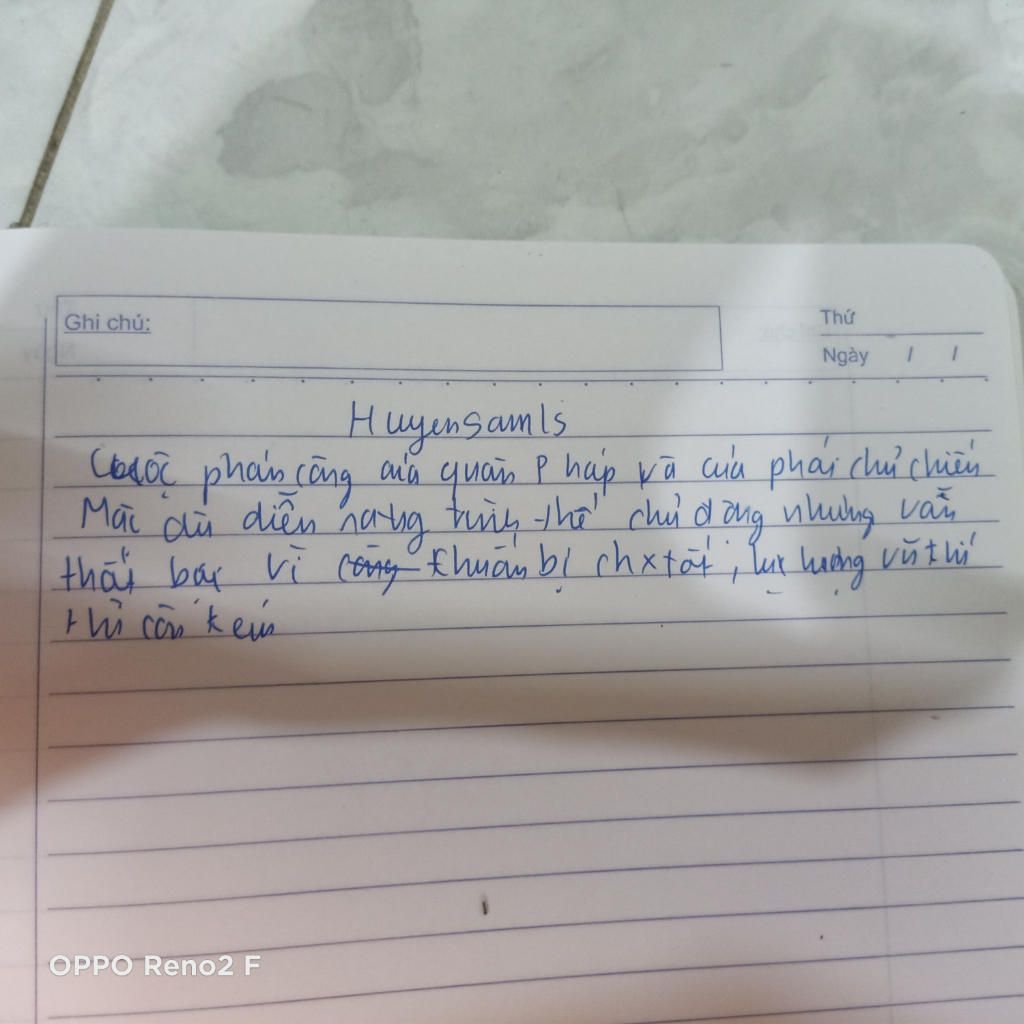 Ghi chú:
Thứ
Ngày / /
Huyensamls
Cuộc phản công của quân Pháp và của phái chủ chiến
Mặc dù diễn na trong tình thế chủ động nhưng vẫn
thất bại vì công chuẩn bị ch x tốt, lực lượng vũ thí
thì còn kém
OPPO Reno2 F